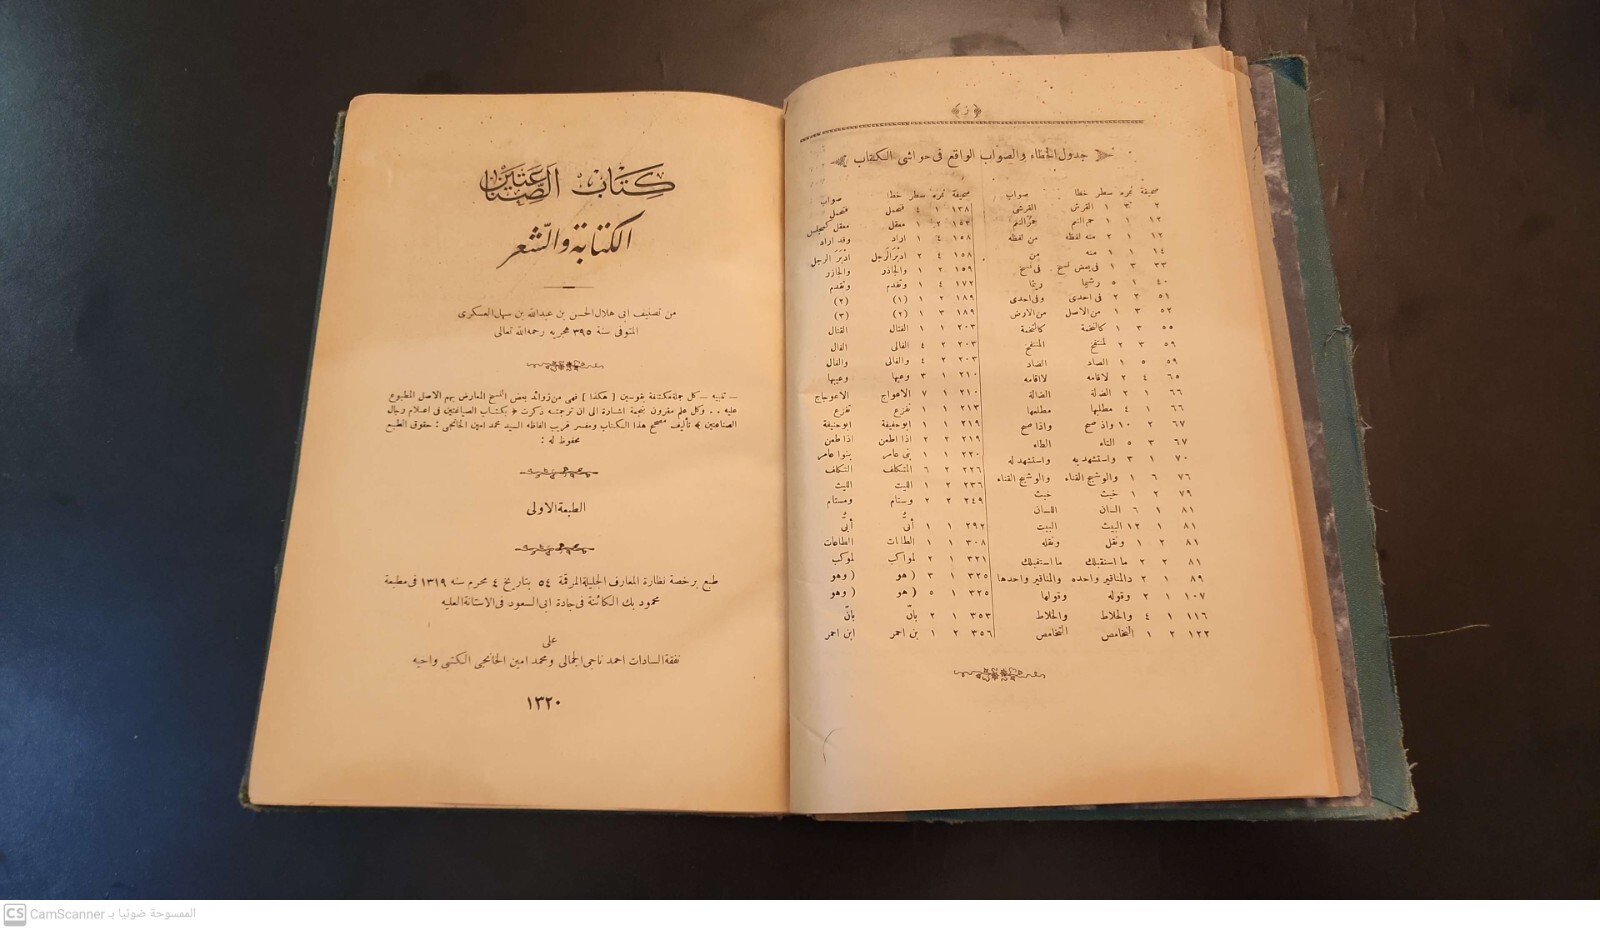 ﴿ ز ﴾
جدول الخطاء والصواب الواقع فى حواشى الكتاب
صحيفة نمره سطر خطا صواب
٢ ٣ ١ القرش القرشى
١٢ ١ ١ حمرالنم حمرالنم
١٢ ١ ٢ منه لفظه من لفظه
١٤ ١ ١ منه من
٣٣ ٣ ١ فى بعض نسخ فى نسخ
٤٠ ١ ٥ رشها ريثما
٥١ ٢ ٢ فى احدى وفى احدى
٥٢ ٣ ١ من الاصل من الارض
٥٥ ٣ ١ كالتخمة كالتخمة
٥٩ ٣ ٢ لمنتفخ المنتفخ
٥٩ ٥ ١ الصاد الضاد
٦٥ ٤ ٢ لاقامه لااقامه
٦٦ ١ ٢ الضلة الضالة
٦٦ ١ ٤ مطلبها مطلمها
٦٧ ٢ ١٠ واذ صح واذا صح
٦٧ ٣ ٥ التاء الطاء
٧٠ ١ ٣ واستشهد به واستشهد له
٧٦ ٦ ١ والوشيج القناء والوشيج القناه
٧٩ ٢ ١ خيث خبث
٨١ ١ ٦ السان اللسان
٨١ ١ ١٢ البيث البيت
٨١ ٢ ١ ونقل ونقله
٨١ ٢ ٢ ما استقبلك ما استقبلك
٨٩ ١ ٢ دالمناقير واحده والمناقير واحدها
١٠٧ ١ ٢ وقوله وقولها
١١٦ ١ ٤ والخلاط والخلاط
١٢٢ ٢ ١ التخامص التخامص
صحيفة نمره سطر خطا صواب
١٣٨ ١ ٤ فنصمل فنصمل
١٥٣ ٢ ١ معقل معقل كمجلس
١٥٨ ٤ ١ اراد وقد اراد
١٥٨ ٤ ٢ ادبر الرجل ادبر الرجل
١٥٩ ٢ ١ والجاذر والجاذر
١٧٢ ٤ ١ وتقدم وتقدم
١٨٩ ٢ ١ (١) (٢)
١٨٩ ٣ ١ (٢) (٣)
٢٠٣ ١ ١ الفتال القتال
٢٠٣ ٢ ٤ الفالى الفال
٢٠٣ ٢ ٤ والفالى والفال
٢١٠ ١ ٣ وعيها وعيبها
٢١٠ ١ ٧ الاهواج الاعوجاج
٢١٣ ١ ١ تغزع تفزع
٢١٩ ١ ١ ابوحفيفة ابوحنيفة
٢١٩ ٢ ٢ اذا اطعن اذا طعن
٢٢٠ ١ ١ بنى عامر بنوا عامر
٢٢٦ ٢ ٦ المتكلف التكلف
٢٣٦ ٢ ١ الليت الليث
٢٤٩ ٢ ٢ وستام ومستام
٢٩٢ ١ ١ أنى أبى
٣٠٨ ١ ١ الطابات الطاعات
٣٢١ ١ ٢ لمواكب لموكب
٣٢٥ ١ ٣ ( هو ( وهو
٣٢٥ ١ ٥ ( هو ( وهو
٣٥٣ ١ ٢ بان بان
٣٥٦ ٢ ١ بن احمر ابن احمر
كتاب الصناعتين
الكتابة والشعر
من تصنيف ابى هلال الحسن بن عبدالله بن سهل العسكرى
المتوفى سنة ٣٩٥ هجريه رحمه الله تعالى
ــ تنبيه ــ كل جملة مكتنفة بقوسين [ هكذا ] فهى من زوائد بعض النسخ المعارض بهم الاصل المطبوع
عليه .. وكل علم مقرون بنجمة اشارة الى ان ترجمته ذكرت ﴿ بكتاب الصناعتين فى اعلام رجال
الصناعتين ﴾ تأليف مصحح هذا الكتاب ومفسر غريب الفاظه السيد محمد امين الخانجى : حقوق الطبع
محفوظة له :
الطبعة الاولى
طبع برخصة نظارة المعارف الجليلة المرقمة ٥٤ بتاريخ ٤ محرم سنه ١٣١٩ فى مطبعة
محمود بك الكائنة فى جادة ابى السعود فى الاستانة العليه
على
نفقة السادات احمد ناجى الجمالى ومحمد امين الخانجى الكتبى واخيه
١٣٢٠
CS CamScanner الممسوحة ضوئيا بـ